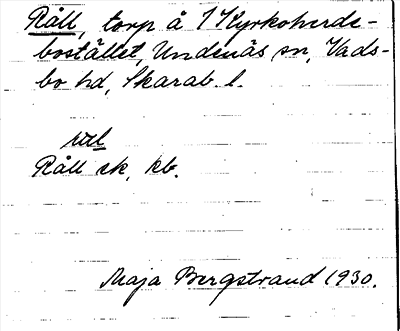 Råll, torp å 1 Kyrkoherde-
bostället, Undenäs sn, Vads-
bo hd, Skarab. l.
Råll sk, kb.
Maja Bergstrand 1930.